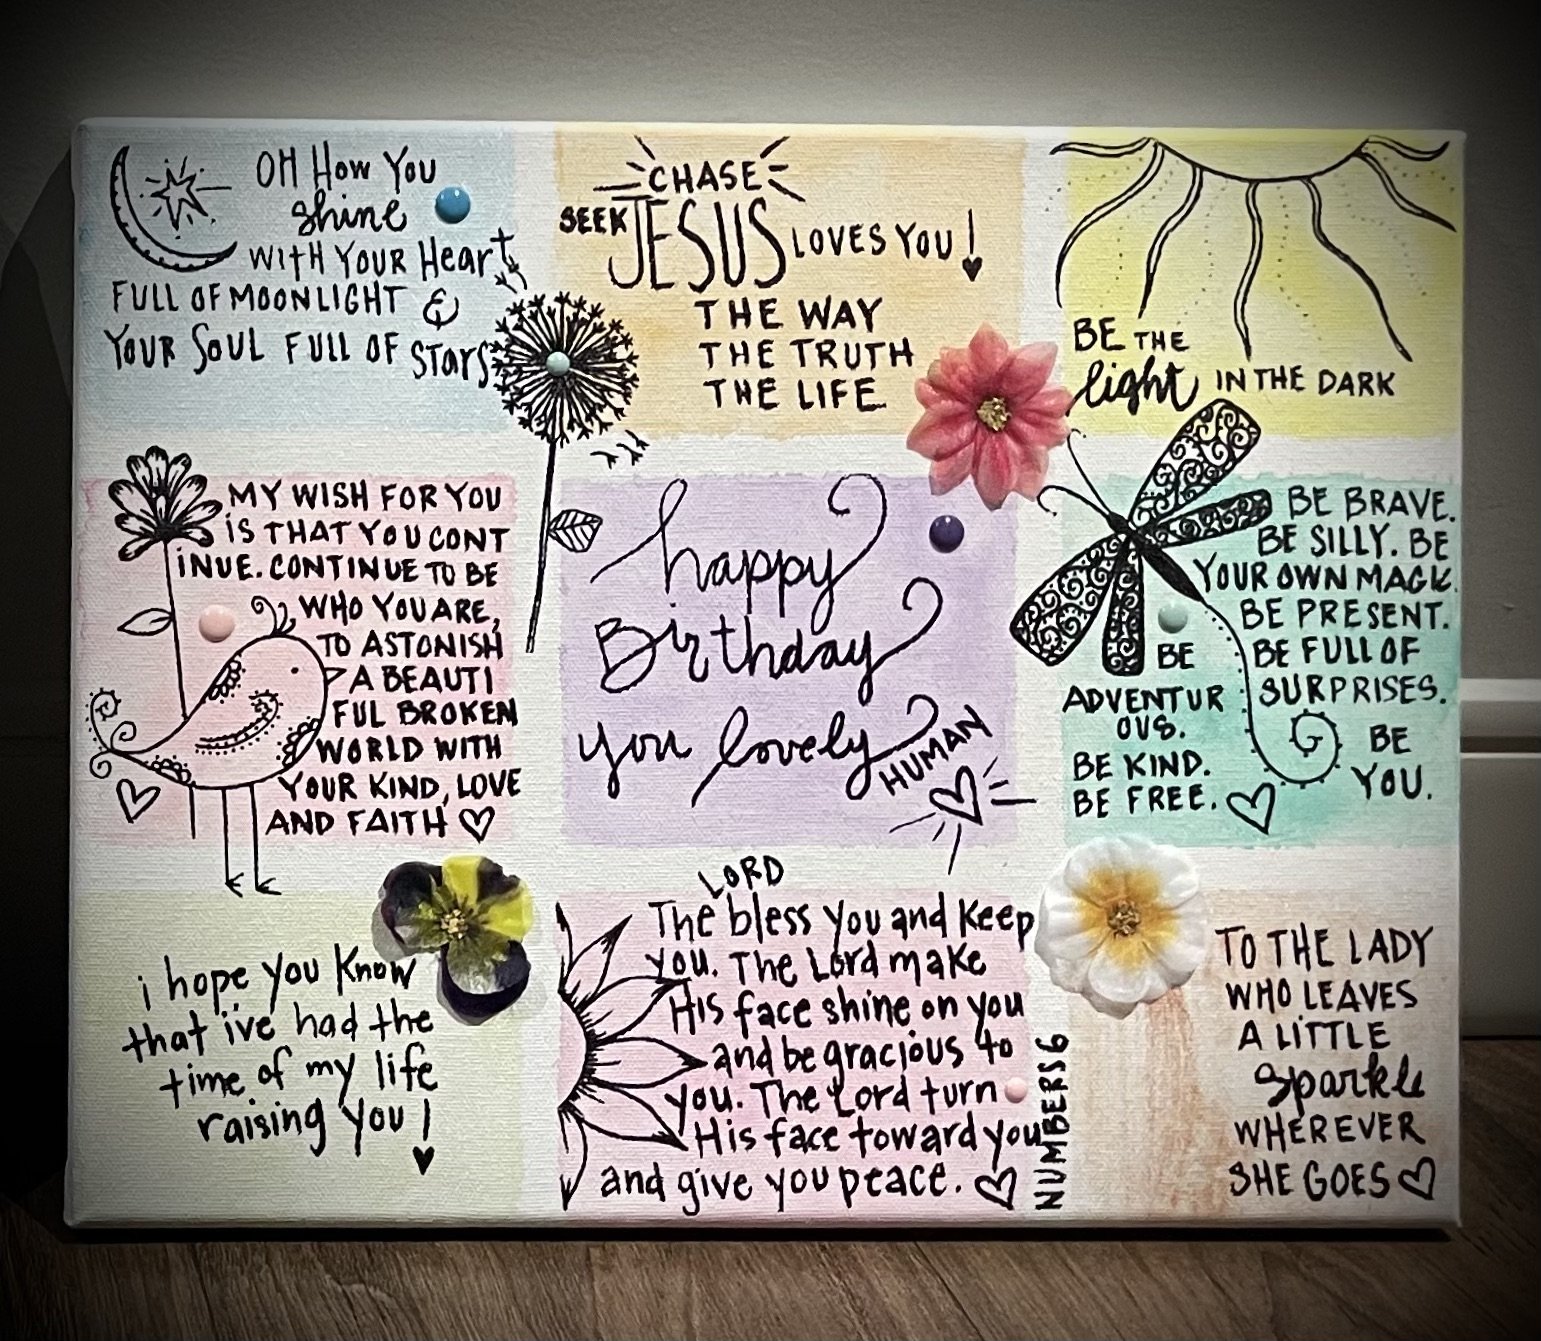 OH HOW YOU
shine
WITH YOUR Heart
FULL OF MOONLIGHT &
YOUR SOUL FULL OF STARS
CHASE
SEEK JESUS LOVES YOU!
THE WAY
THE TRUTH
THE LIFE
BE THE
light IN THE DARK
MY WISH FOR YOU
IS THAT YOU CONT
INUE. CONTINUE TO BE
WHO YOU ARE,
TO ASTONISH
A BEAUTI
FUL BROKEN
WORLD WITH
YOUR KIND, LOVE
AND FAITH
happy
Birthday
you lovely
HUMAN
BE BRAVE.
BE SILLY. BE
YOUR OWN MAGIC.
BE PRESENT.
BE FULL OF
SURPRISES.
BE
YOU.
BE
ADVENTUR
OUS.
BE KIND.
BE FREE.
i hope you know
that i've had the
time of my life
raising you!
LORD
The bless you and keep
you. The Lord make
His face shine on you
and be gracious to
you. The Lord turn
His face toward you
and give you peace.
NUMBERS 6
TO THE LADY
WHO LEAVES
A LITTLE
Sparkle
WHEREVER
SHE GOES